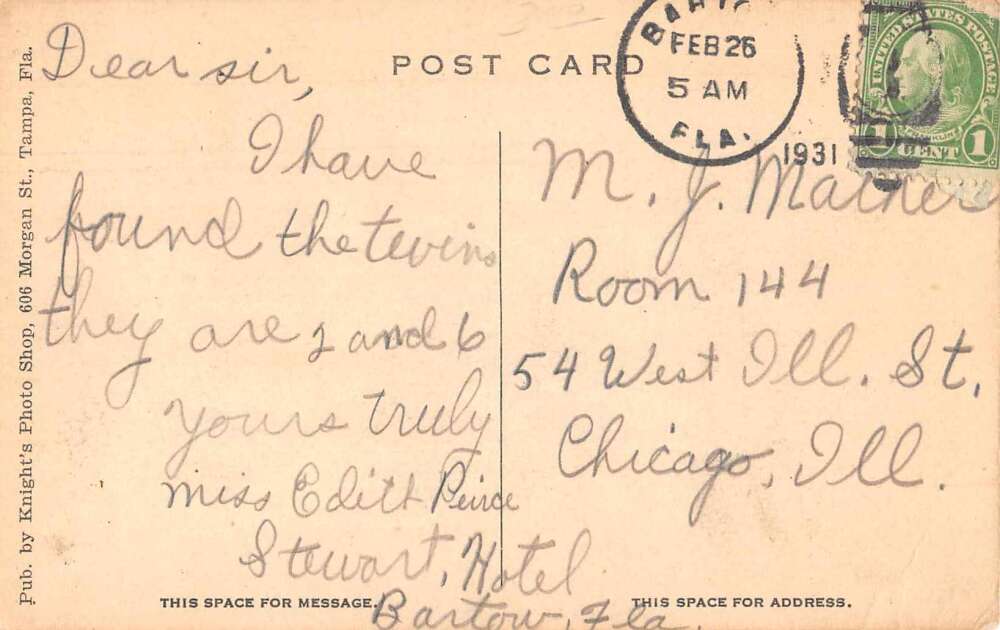 POST CARD
BARTOW
FEB 26
5 AM
FLA.
1931
UNITED STATES POSTAGE
FRANKLIN
1 CENT 1
Dear sir,
I have
found the twins
they are 2 and 6
yours truly
miss Edith Peirce
Stewart, Hotel
Bartow, Fla.
M. J. Mather
Room 144
54 West Ill. St,
Chicago, Ill.
THIS SPACE FOR MESSAGE.
THIS SPACE FOR ADDRESS.
Pub. by Knight's Photo Shop, 606 Morgan St., Tampa, Fla.